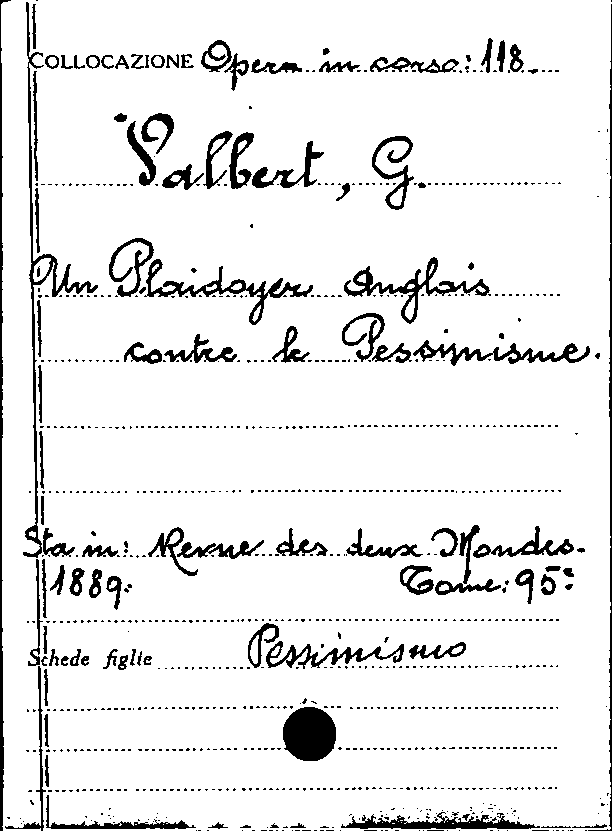 COLLOCAZIONE Opera in corso: 118.
Valbert, G.
Un Plaidoyer Anglais
contre le Pessimisme.
Sta in: Revue des deux Mondes.
1889. Tome: 95e
Schede figlie Pessimismo